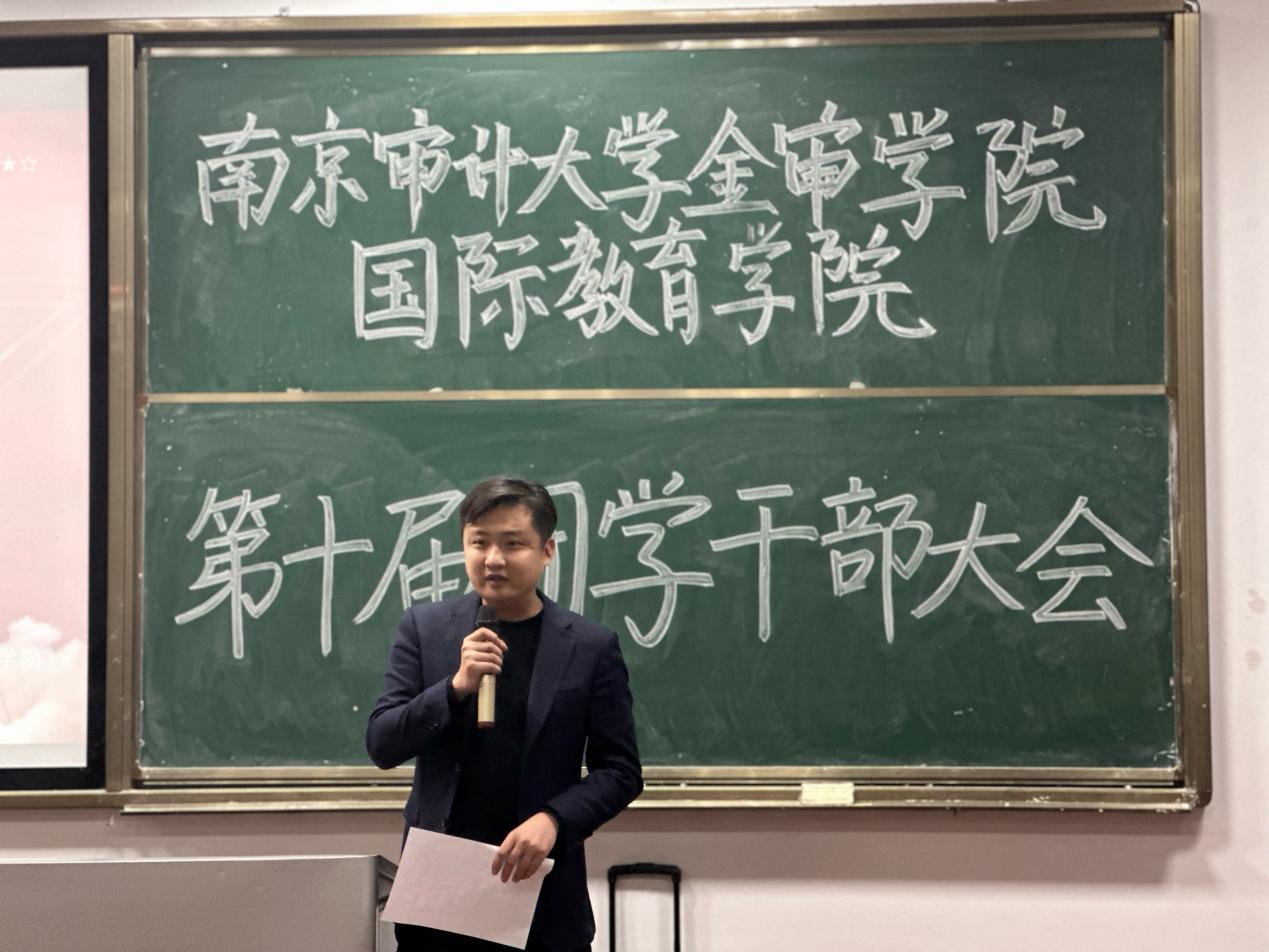 南京审计大学金审学院
国际教育学院
第十届 学干部大会
学院